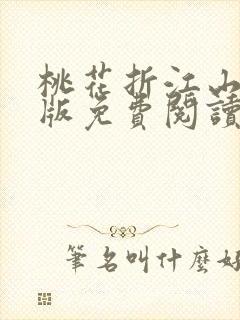 桃花折江山
版免費閱讀
筆名叫什麼好